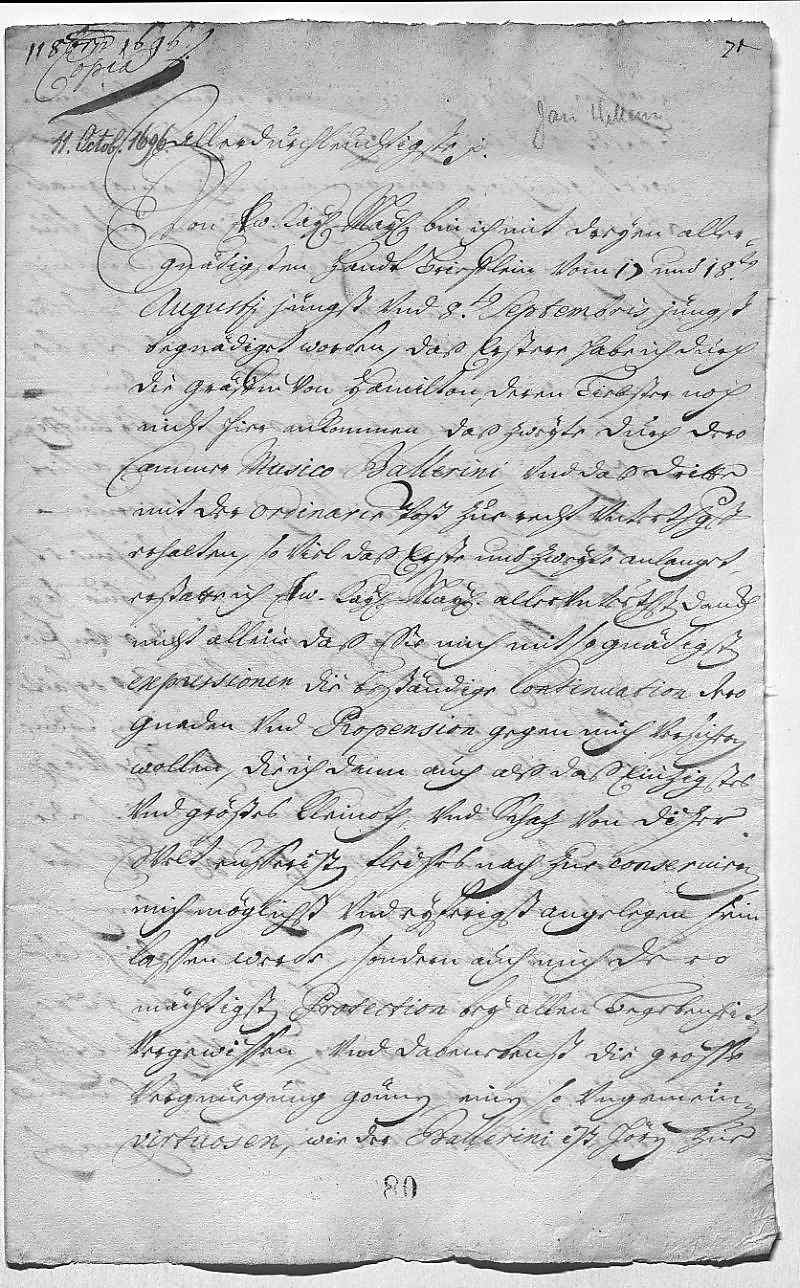 11 8bris 1696.
Copia
71
Jan Willem
11. Octob. 1696. Allerdurchleuchtigste p.
Von Ew. Kayl. Mayl. bin ich mit dreyen aller-
gnädigsten Handt Brieflein vom 17 und 18.ten
Augusti jüngst Vnd 8.ten Septembris jüngst
begnädiget worden, das Erstere hab ich durch
die gräffin Von Hamilton, deren Liebster noch
nicht hier ankommen, das zweyte durch dero
Cammer Musico Ballerini, Vnd das dritte
mit der ordinarie Post zur recht
erhalten, so viel das Erste und zweyte anlanget,
erstatte ich Ew. Kayl. Mayl. allerVnterthgst danckh
nicht allein daß Sie mich mit so gnädigsten
expressionen die beständige Continuation dero
Gnaden Vnd Propension gegen mich Versichern
wollen, die ich dann auch alß daß Eintzigstes
Vnd größtes Kleinoth, Vnd Schatz Von diser
Welt eusseristen fleisses nach zur conserviren
mich möglichst Vnd eyferigst angelegen sein
lassen werde, sondern auch mich dero
mächtigsten Protection bey allen Begebenheiten
Vergewissen, Vnd dabenebenst die grosse
Vergnüegung gönnen, einen so Vngemein-
virtuosen, wie der Ballerini ist, hören zur
80